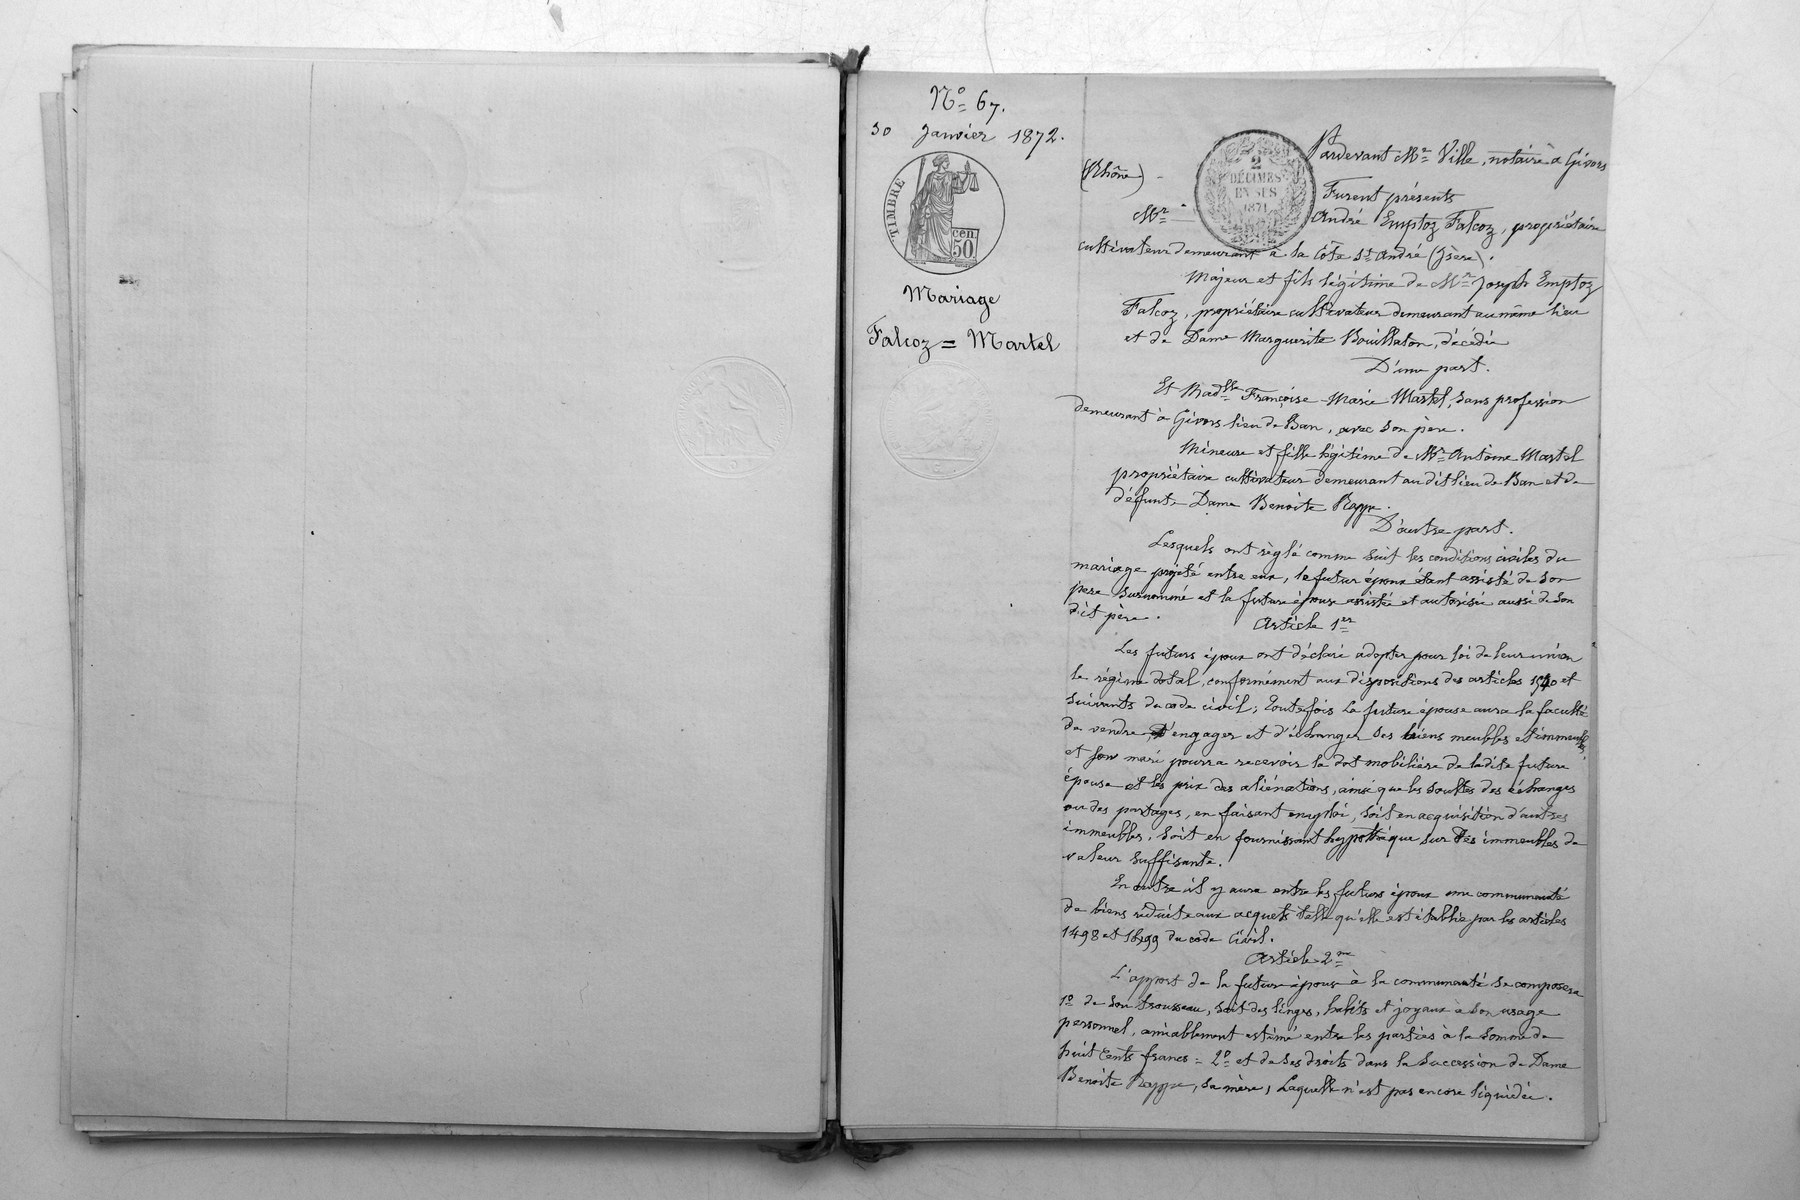 No 67.
30 Janvier 1872.
TIMBRE
cen.
50
Mariage
Falcoz = Martel
2
DÉCIMES
EN SUS
1871
Pardevant Me Ville, notaire à Givors
(Rhône)
Furent présents
Mr André Emptoz Falcoz, propriétaire
cultivateur demeurant à la Côte St André (Isère).
Majeur et fils légitime de Mr Joseph Emptoz
Falcoz, propriétaire cultivateur demeurant au même lieu
et de Dame Marguerite Bouillaton, décédée
D'une part.
Et Madlle Françoise Marie Martel, sans profession
demeurant à Givors lieu de Ban, avec son père.
Mineure et fille légitime de Mr Antoine Martel
propriétaire cultivateur demeurant au dit lieu de Ban et de
défunte Dame Benoite
D'autre part.
Lesquels ont règlé comme suit les conditions civiles du
mariage projeté entre eux, le futur époux étant assisté de son
père surnommé et la future épouse assistée et autorisée aussi de son
dit père.
Article 1er
Les futurs époux ont déclaré adopter pour loi de leur union
le régime dotal, conformément aux dispositions des articles 1540 et
suivants du code civil; toutefois la future épouse aura la faculté
de vendre d'engager et d'échanger ses biens meubles et immeubles,
et son mari pourra recevoir la dot mobilière de ladite future
épouse et les prix des aliénations, ainsi que les soultes des échanges
ou des partages, en faisant emploi, soit en acquisition d'autres
immeubles, soit en fournissant hypothèque sur des immeubles de
valeur suffisante.
En outre il y aura entre les futurs époux une communauté
de biens réduite aux acquets telle qu'elle est établie par les articles
1498 et 1499 du code Civil.
Article 2me
L'apport de la future épouse à la communauté se composera
1o de son trousseau, soit des linges, habits et joyaux à son usage
personnel, amiablement estimé entre les parties à la somme de
huit cents francs = 2o et de ses droits dans la succession de Dame
Benoite sa mère, Laquelle n'est pas encore liquidée.